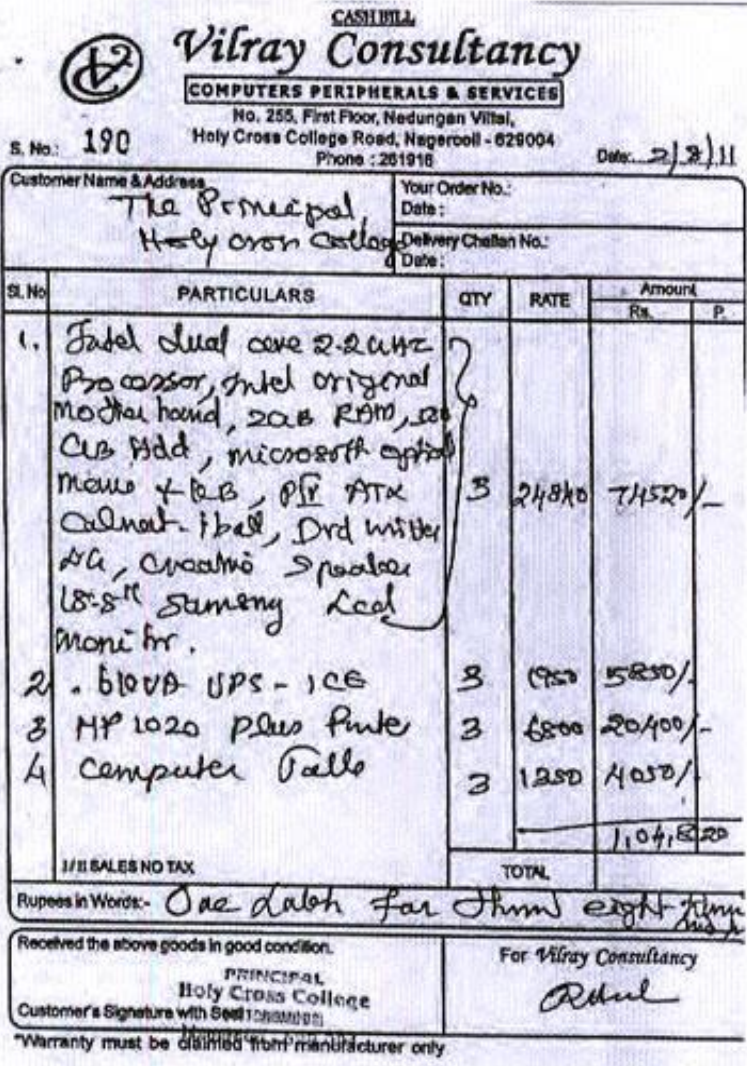 CASH BILL
Vilray Consultancy
COMPUTERS PERIPHERALS & SERVICES
No. 255, First Floor, Nedungan Villai,
Holy Cross College Road, Nagercoil - 629004
Phone : 261916
S. No.: 190
Date: 2/8/11
Customer Name & Address
The Principal
Holy Cross College
Your Order No.:
Date :
Delivery Challan No.:
Date :
Sl. No PARTICULARS QTY RATE Amount
Rs. P.
1. Intel dual core 2.2 GHz
Processor, Intel original
Mother board, 2GB RAM,
GB Hdd, microsoft optical
Mouse + KB, ATX
Cabinet - iball, Dvd writer
LG, Creative Speaker
18.5" Samsung Lcd
Monitor.
3 24840 74520/-
2. 610VA UPS - ICE 3 1950 5850/-
3 HP 1020 Plus Printer 3 6800 20400/-
4 Computer Table 3 1350 4050/-
1,04,820
1/II SALES NO TAX TOTAL
Rupees in Words:- One Lakh Four Thousand eight
Received the above goods in good condition.
PRINCIPAL
Holy Cross College
Customer's Signature with Seal
For Vilray Consultancy
*Warranty must be claimed from manufacturer only